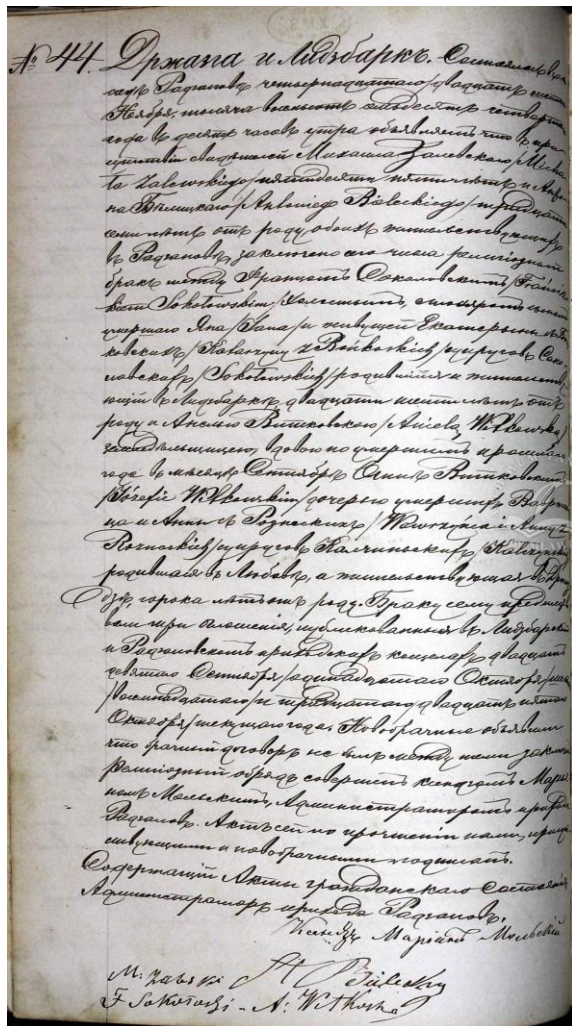 № 44. Држазга и Лидзбаркъ. Состоялось въ по-
садѣ Радзановѣ четырнадцатаго /двадцать шестаго/
Ноября, тысяча восемьсотъ семьдесятъ четвертаго
года въ десять часовъ утра объявляемъ что въ при-
сутствіи свидѣтелей Михаила Залевскаго /Micha
ła Zalewskiego/ пятидесяти пяти лѣтъ и Анто
на Бѣлицкаго /Antoniego Bieleckiego/ тридцати
семи лѣтъ отъ роду, обоихъ жительствующихъ
въ Радзановѣ, заключено сего числа религіозный
бракъ между Францомъ Соколовскимъ /Francisz
kiem Sokołowskim/ холостымъ, сыномъ
умершаго Яна /Jana/ и живущей Екатерины
ковскихъ /Katarzyny z Bońkoskich/ супруговъ Соко-
ловскихъ /Sokołowskich/ родившійся и жительству
ющій въ Лидзбаркѣ, двадцати шести лѣтъ отъ
роду и Анелею Витковскою /Anielą Witkowską/
вдовою по умершемъ прошлаго
года въ мѣсяцѣ Сентябрѣ Витковскимъ
/Józefie Witkowskim/ дочерью умершихъ Ваврин
ца и Анны съ Розноскихъ /Wawrzyńca i Anny z
Roznoskich/ супруговъ Калчиноскихъ /Kalczynskich/
родившаяся въ Любовѣ, а жительствующая въ Држа
згѣ, сорока лѣтъ отъ роду. Браку сему предшество
вали три оглашенія, публикованныя въ Лидзбарскомъ
и Радзановскомъ приходскихъ костелахъ двадцать
девятаго Сентября /одинадцатаго Октября/
/восемнадцатаго/ и тридцатаго двадцать пятаго
Октября/ текущаго года. Новобрачные объявили
что брачный договоръ не былъ между ними заключенъ
Религіозный обрядъ совершенъ ксендзомъ Маріа
номъ Мольскимъ, Администраторомъ прихода
Радзановъ. Актъ сей по прочтеніи нами, прису
тствующими и новобрачными подписанъ.
Содержащій Акты гражданскаго Состоянія
Администраторъ прихода Радзановъ.
Ксендзъ Маріанъ Мольскій
M: Zalewski A Bielecky
F Sokołoski - A: Witkoska